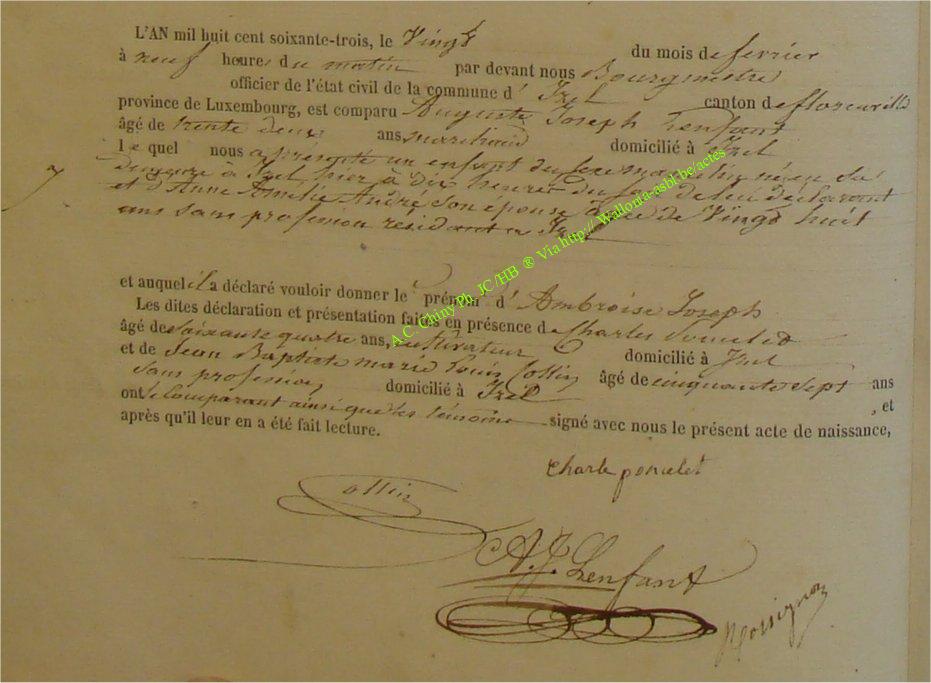 L'AN mil huit cent soixante-trois, le Vingt du mois de fevrier
à neuf heures du matin par devant nous Bourgmestre
officier de l'état civil de la commune d' Izel canton de florenville
province de Luxembourg, est comparu Auguste Joseph Lenfant
âgé de trente deux ans, domicilié à Izel
lequel nous a présenté un enfant du sexe masculin né en sa
demeure à Izel hier à dix heures du soir de lui déclarant
et d'Anne Amélie André son épouse âgée de Vingt huit
ans sans profession résidant a Izel
7
et auquel il a déclaré vouloir donner le prénom d' Ambroise Joseph
Les dites déclaration et présentation faites en présence de Charles Poncelet
âgé de soixante quatre ans, cultivateur domicilié à Izel
et de Jean Baptiste marie louis Collin âgé de cinquante sept ans
sans profession domicilié à Izel , et
ont le Comparant ainsi que les témoins signé avec nous le présent acte de naissance,
après qu'il leur en a été fait lecture.
A.C. Chiny Ph. JC/HB ® Via http://Wallonia-asbl.be/actes
Charle poncelet
Collin
A.J. Lenfant
Rossignon